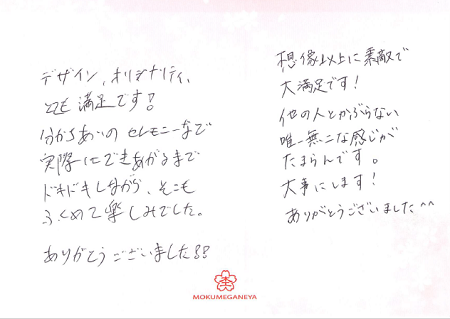 デザイン、オリジナリティ、
とても満足です!!
分かちあいのセレモニーなで
実際にできあがるまで
ドキドキしながら、そこも
ふくめて楽しみでした。
ありがとうございました!!
想像以上に素敵で
大満足です!
他の人とかぶらない
唯一無二な感じが
たまらんです。
大事にします!
ありがとうございました^^
MOKUMEGANEYA